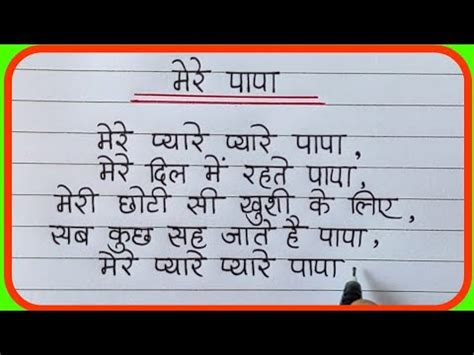 मेरे पापा
मेरे प्यारे प्यारे पापा,
मेरे दिल में रहते पापा,
मेरी छोटी सी खुशी के लिए,
सब कुछ सह जाते है पापा,
मेरे प्यारे प्यारे पापा,